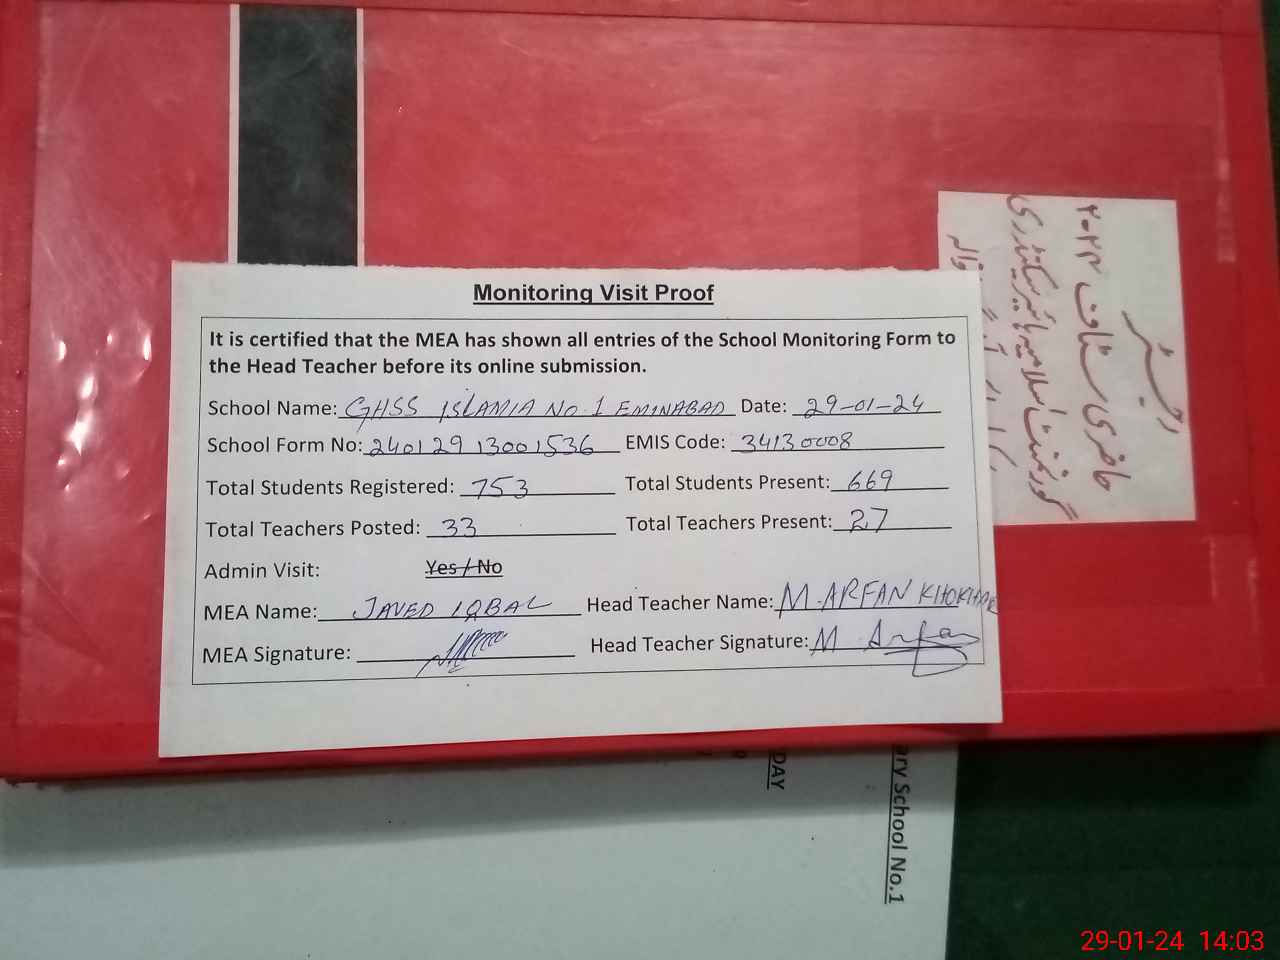 Monitoring Visit Proof
It is certified that the MEA has shown all entries of the School Monitoring Form to
the Head Teacher before its online submission.
School Name: GHSS ISLAMIA NO.1 EMINABAD Date: 29-01-24
School Form No: 24012913001536 EMIS Code: 34130008
Total Students Registered: 753 Total Students Present: 669
Total Teachers Posted: 33 Total Teachers Present: 27
Admin Visit: Yes / No
MEA Name: JAVED IQBAL Head Teacher Name: M. ARFAN KHOKHAR
MEA Signature: Head Teacher Signature: M Arfan
رجسٹر
حاضری سٹاف
گورنمنٹ اسلامیہ ہائیر سیکنڈری
DAY
ary School No.1
29-01-24 14:03